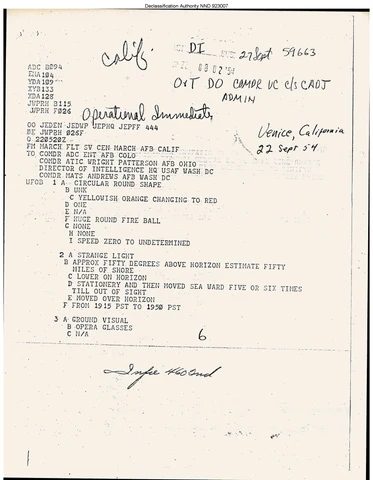 Declassification Authority NND 923007
Calif. DI 27 Sept 59663
'54
OVT DO COMDR VC C/S CADJ
ADMIN
ADC B094
YDA109
XYB133
XDA128
JWPRH B115
JWPRH F026
Operational Immediate
OO JEDEN JEDWP JEPHQ JEPFF 444
DE JWPRH 026F
O 220520Z
Venice, California
22 Sept 54
FM MARCH FLT SV CEN MARCH AFB CALIF
TO COMDR ADC ENT AFB COLO
COMDR ATIC WRIGHT PATTERSON AFB OHIO
DIRECTOR OF INTELLIGENCE HQ USAF WASH DC
COMDR MATS ANDREWS AFB WASH DC
UFOB 1 A CIRCULAR ROUND SHAPE
B UNK
C YELLOWISH ORANGE CHANGING TO RED
D ONE
E N/A
F HUGE ROUND FIRE BALL
G NONE
H NONE
I SPEED ZERO TO UNDETERMINED
2 A STRANGE LIGHT
B APPROX FIFTY DEGREES ABOVE HORIZON ESTIMATE FIFTY
MILES OF SHORE
C LOWER ON HORIZON
D STATIONERY AND THEN MOVED SEA WARD FIVE OR SIX TIMES
TILL OUT OF SIGHT
E MOVED OVER HORIZON
F FROM 1915 PST TO 1950 PST
3 A GROUND VISUAL
B OPERA GLASSES
C N/A
6